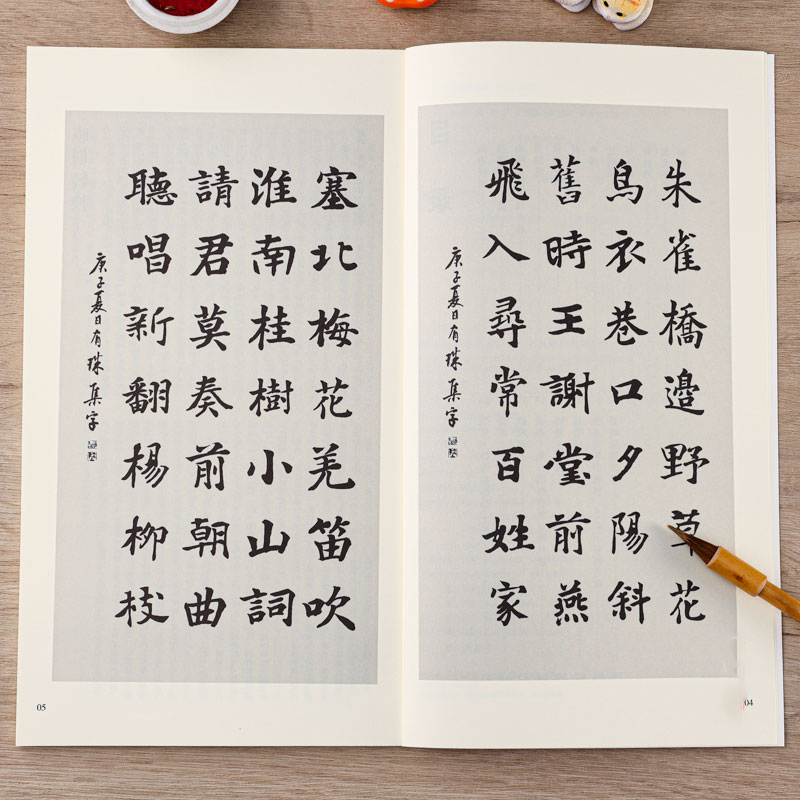 朱雀橋邊野草花
烏衣巷口夕陽斜
舊時王謝堂前燕
飛入尋常百姓家
庚子夏日有珠集字
04
塞北梅花羌笛吹
淮南桂樹小山詞
請君莫奏前朝曲
聽唱新翻楊柳枝
庚子夏日有珠集字
05